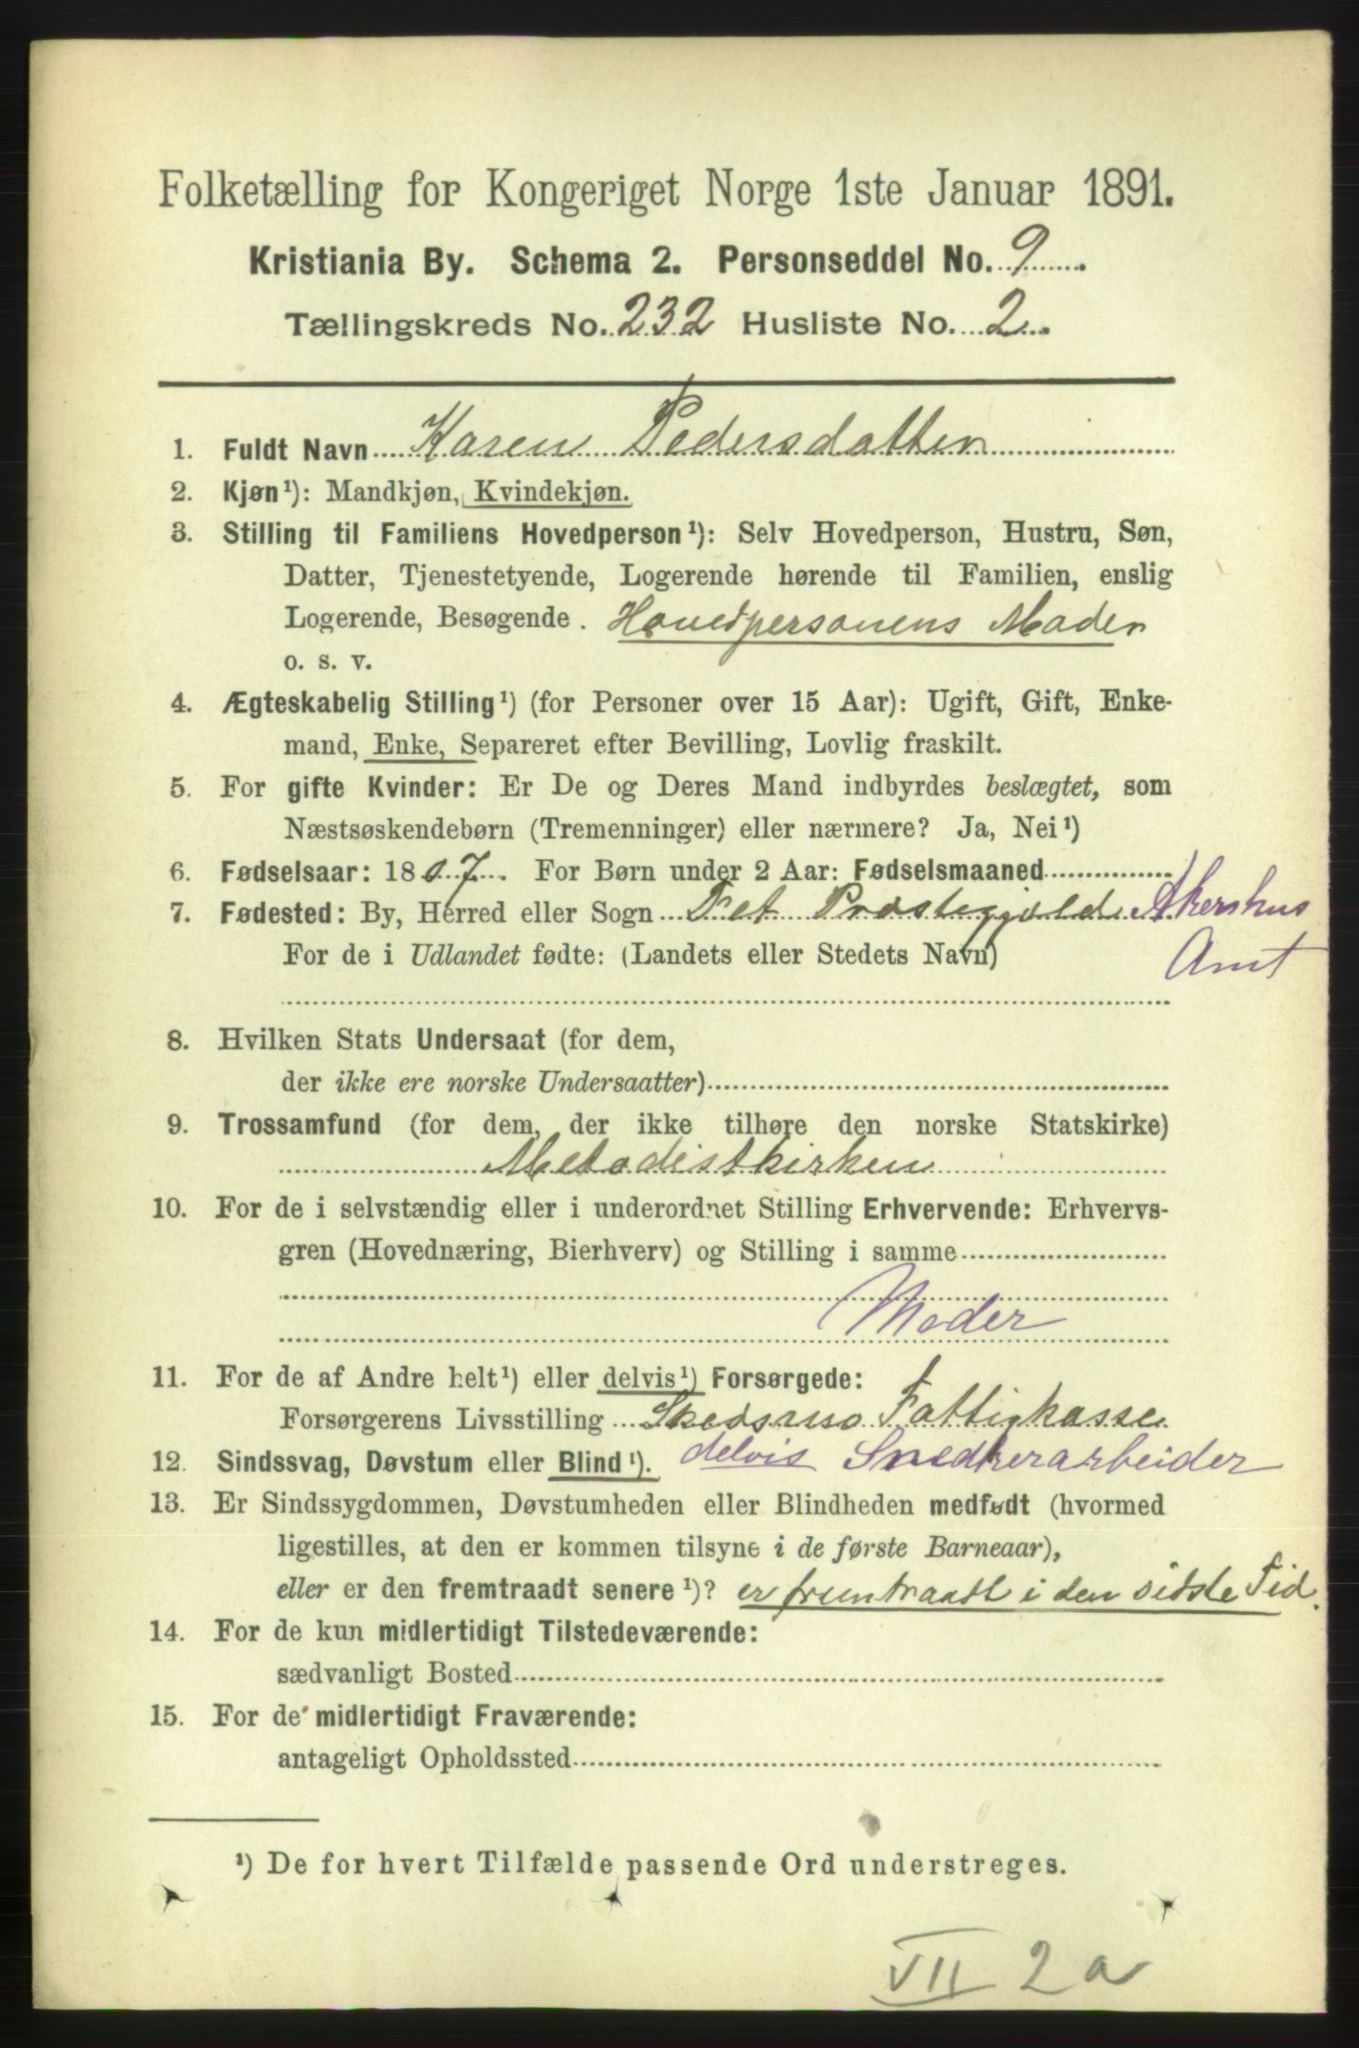 Folketælling for Kongeriget Norge 1ste Januar 1891.
Kristiania By. Schema 2. Personseddel No. 9
Tællingskreds No. 232 Husliste No. 2
1. Fuldt Navn Karen Pedersdatter
2. Kjøn¹): Mandkjøn, Kvindekjøn.
3. Stilling til Familiens Hovedperson¹): Selv Hovedperson, Hustru, Søn,
Datter, Tjenestetyende, Logerende hørende til Familien, enslig
Logerende, Besøgende. Hovedpersonens Moder
o. s. v.
4. Ægteskabelig Stilling¹) (for Personer over 15 Aar): Ugift, Gift, Enke-
mand, Enke, Separeret efter Bevilling, Lovlig fraskilt.
5. For gifte Kvinder: Er De og Deres Mand indbyrdes beslægtet, som
Næstsøskendebørn (Tremenninger) eller nærmere? Ja, Nei¹)
6. Fødselsaar: 1807. For Børn under 2 Aar: Fødselsmaaned
7. Fødested: By, Herred eller Sogn Fet Præstegjæld Akershus
Amt
For de i Udlandet fødte: (Landets eller Stedets Navn)
8. Hvilken Stats Undersaat (for dem,
der ikke ere norske Undersaatter)
9. Trossamfund (for dem, der ikke tilhøre den norske Statskirke)
Metodistkirken
10. For de i selvstændig eller i underordnet Stilling Erhvervende: Erhvervs-
gren (Hovednæring, Bierhverv) og Stilling i samme
Moder
11. For de af Andre helt¹) eller delvis¹) Forsørgede:
Forsørgerens Livsstilling Skedsmo Fattigkasse
delvis Snedkerarbeider
12. Sindssvag, Døvstum eller Blind¹).
13. Er Sindssygdommen, Døvstumheden eller Blindheden medfødt (hvormed
ligestilles, at den er kommen tilsyne i de første Barneaar),
eller er den fremtraadt senere¹)? er fremtraadt i den sidste Tid.
14. For de kun midlertidigt Tilstedeværende:
sædvanligt Bosted
15. For de midlertidigt Fraværende:
antageligt Opholdssted
¹) De for hvert Tilfælde passende Ord understreges.
VII 2a